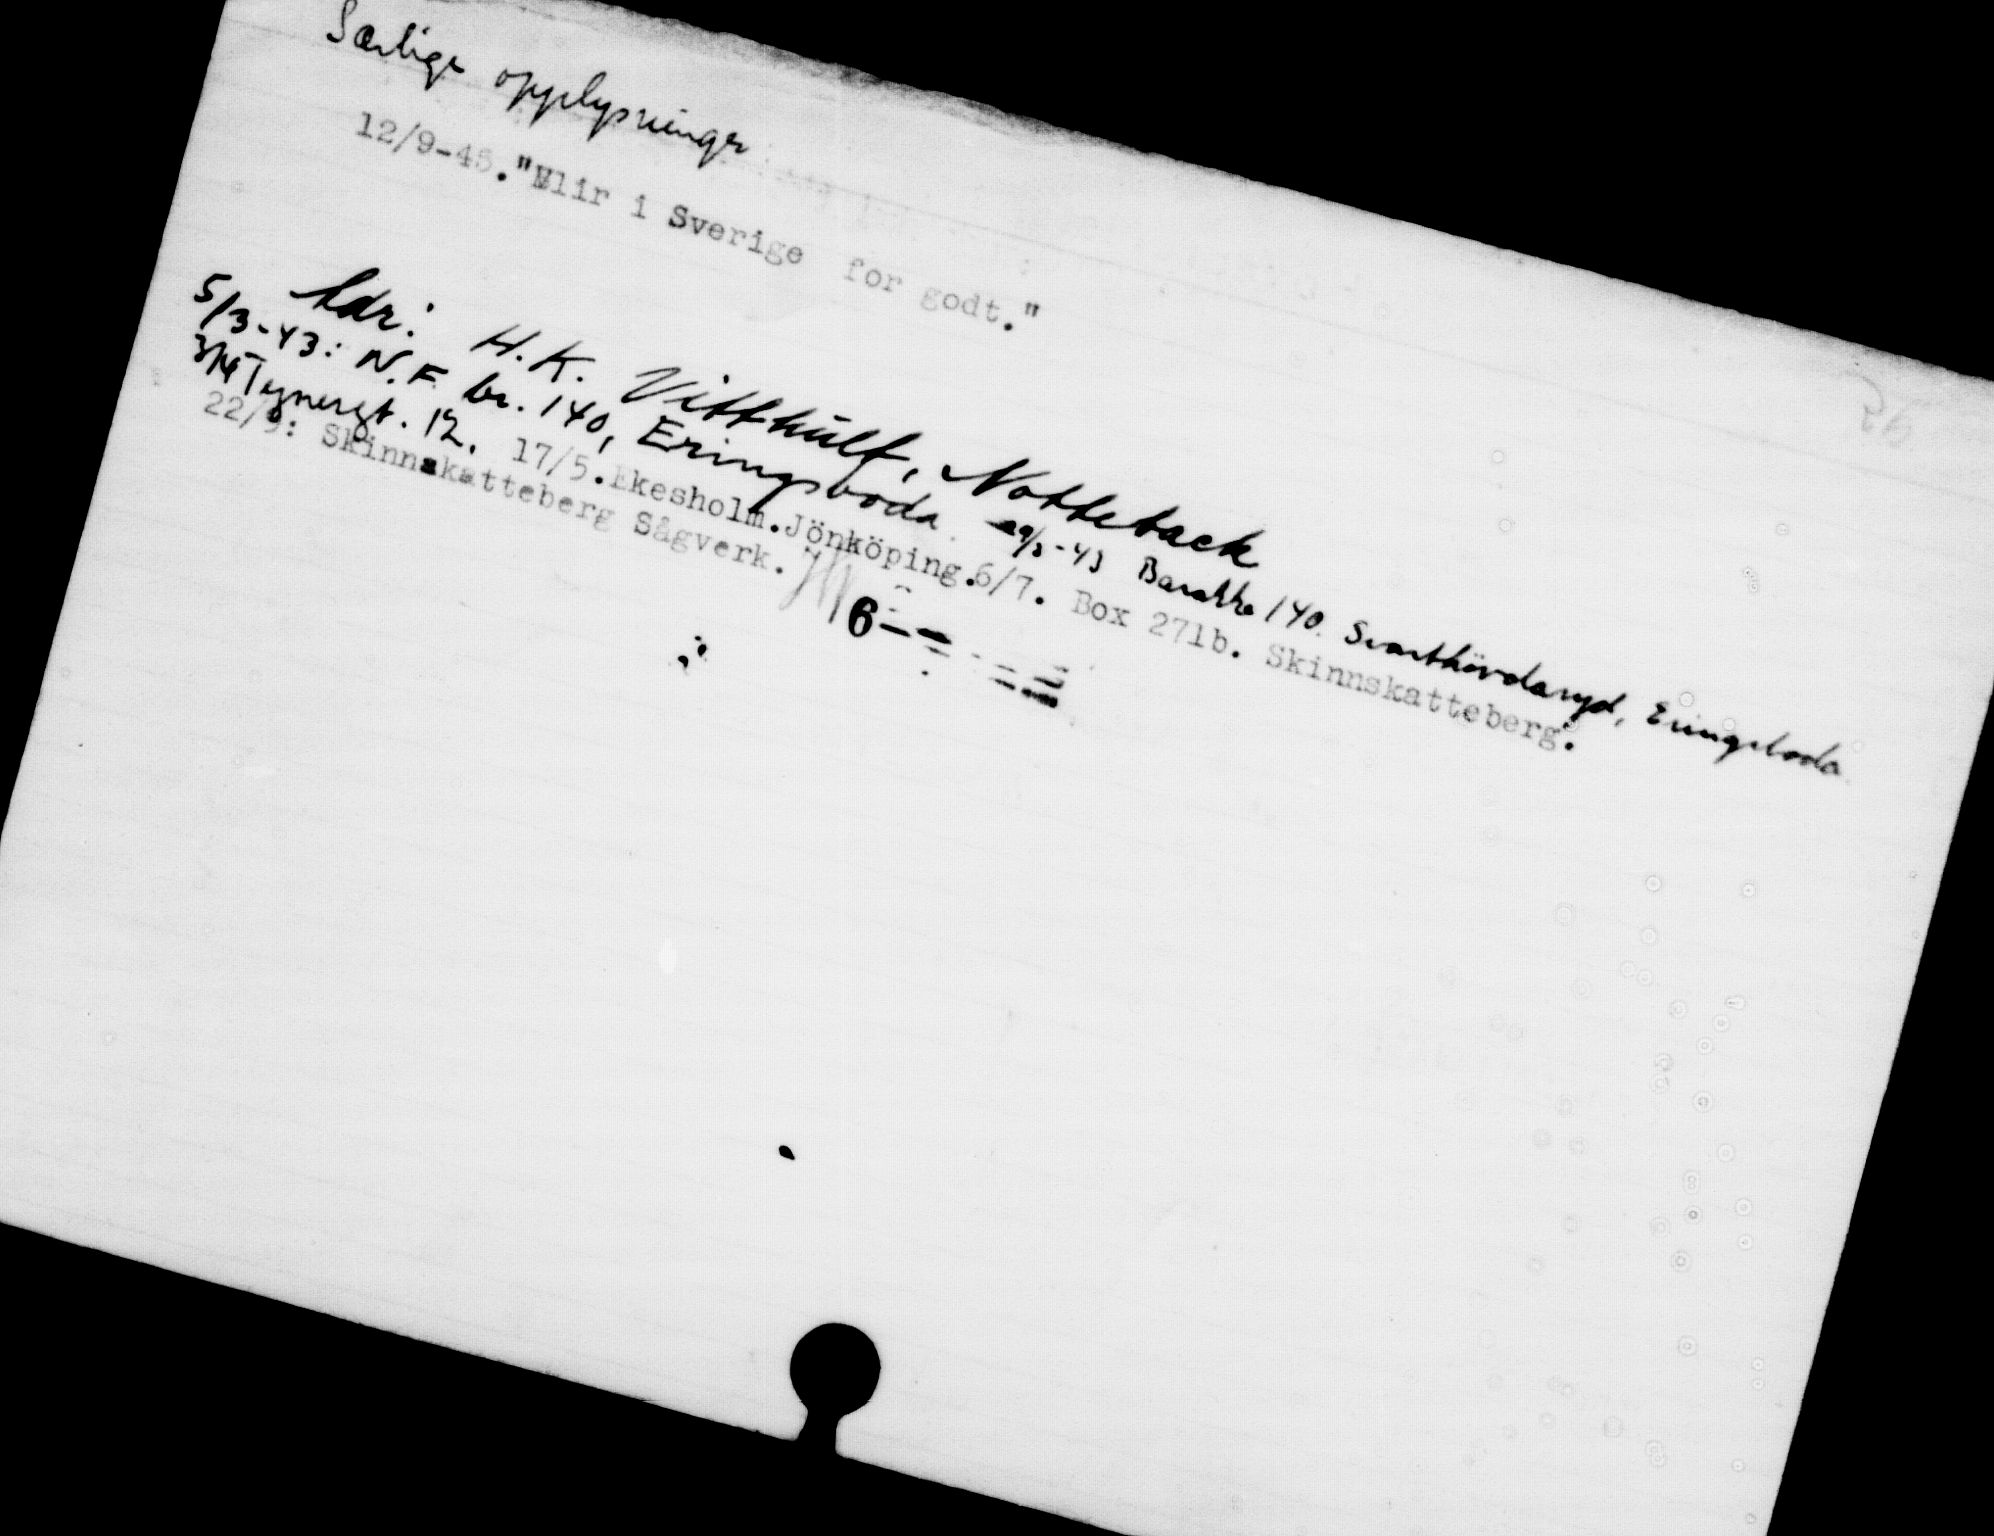 Særlige opplysninger
12/9-45."Blir i Sverige for godt."
Adr: H.K. Vitthult, Notteback
5/3-43: N.F. br. 140, Eringsboda 29/3-43 Barakke 140. Svarthövdaryd, Eringsboda
3/4 Tynergt. 12. 17/5.Ekesholm.Jönköping.6/7. Box 271b. Skinnskatteberg.
22/9: Skinnskatteberg Sågverk.
6